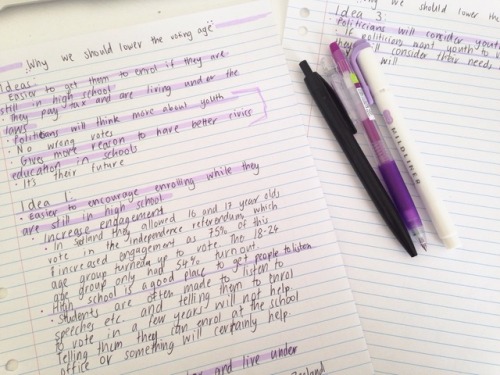 "Why we should lower the voting age"
Ideas:
· Easier to get them to enrol if they are
still in high school
· they pay tax and are living under the
laws
· Politicians will think more about youth
· No wrong votes
· Gives more reason to have better civics
education in schools
· It's their future
Idea 1:
· Easier to encourage enrolling while they
are still in high school
· Increase engagement
· In Scotland they allowed 16 and 17 year olds
vote in the independence referendum, which
increased engagement as 75% of this
age group turned up to vote. The 18-24
age group only had 54% turnout.
· High school is a good place to get people to listen
· Students are often made to listen to
speeches etc. and telling them to enrol
to vote in a few years will not help.
Telling them they can enrol at the school
office or something will certainly help.
and live under
we should lower the
Idea 3:
Politicians will consider youth
· If politicians want youth to
they will consider their needs
will
MILDLINER